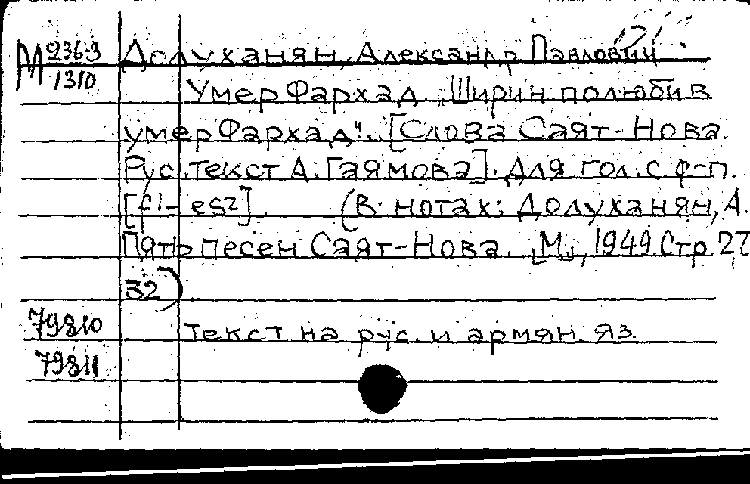 М 936-9
1310
Долуханян, Александр Павлович
Умер Фархад, Ширин полюбив
умер Фархад". [Слова Саят-Нова.
Рус. текст А. Гаямова]. Для гол. с ф-п.
[f1- es2]. (В нотах: Долуханян, А.
Пять песен Саят-Нова. М., 1949. Стр. 27
32)
79810
Текст на рус. и армян. яз.
79811